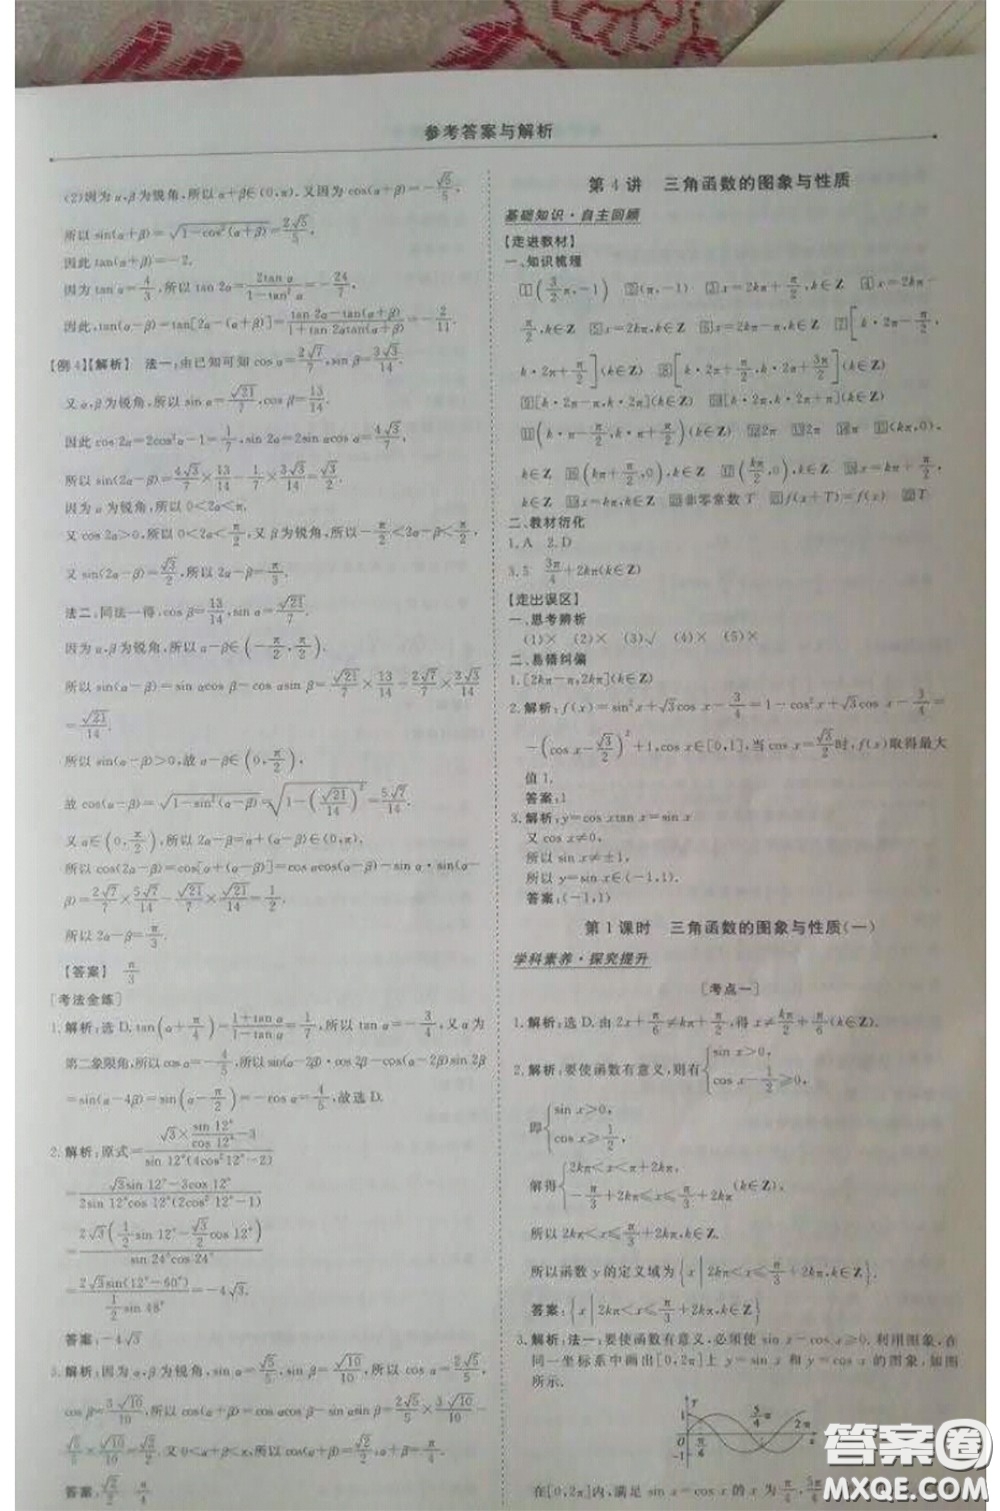 参考答案与解析
(2)因为 α,β为锐角,所以 α+β∈(0,π).又因为 cos(α+β)=-√5/5,
所以 sin(α+β)=√(1-cos²(α+β))=2√5/5,
因此 tan(α+β)=-2.
因为 tan α=4/3,所以 tan 2α=2tan α/(1-tan² α)=-24/7,
因此,tan(α-β)=tan[2α-(α+β)]=(tan 2α-tan(α+β))/(1+tan 2αtan(α+β))=-2/11.
[例4]【解析】 法一:由已知可知 cos α=2√7/7,sin β=3√3/14.
又 α,β为锐角,所以 sin α=√21/7,cos β=13/14.
因此 cos 2α=2cos²α-1=1/7,sin 2α=2sin αcos α=4√3/7,
所以 sin(2α-β)=4√3/7×13/14-1/7×3√3/14=√3/2.
因为 α 为锐角,所以 0<2α<π.
又 cos 2α>0,所以 0<2α<π/2,又 β为锐角,所以-π/2<2α-β<π/2,
又 sin(2α-β)=√3/2,所以 2α-β=π/3.
法二:同法一得,cos β=13/14,sin α=√21/7.
因为 α,β为锐角,所以 α-β∈(-π/2,π/2).
所以 sin(α-β)=sin αcos β-cos αsin β=√21/7×13/14-2√7/7×3√3/14
=√21/14.
所以 sin(α-β)>0,故 α-β∈(0,π/2),
故 cos(α-β)=√(1-sin²(α-β))=√(1-(√21/14)²)=5√7/14.
又 α∈(0,π/2),所以 2α-β=α+(α-β)∈(0,π).
所以 cos(2α-β)=cos[α+(α-β)]=cos αcos(α-β)-sin α·sin(α-
β)=2√7/7×5√7/14-√21/7×√21/14=1/2,
所以 2α-β=π/3.
【答案】 π/3
[考法全练]
1.解析:选 D.tan(α+π/4)=(1+tan α)/(1-tan α)=1/7,所以 tan α=-3/4,又 α 为
第二象限角,所以 cos α=-4/5,所以 sin(α-2β)·cos 2β-cos(α-2β)sin 2β
=sin(α-4β)=sin(α-π/2)=-cos α=4/5,故选 D.
2.解析:原式=(√3×sin 12°/cos 12°-3)/(sin 12°(4cos²12°-2))
=(√3sin 12°-3cos 12°)/(2sin 12°cos 12°(2cos² 12°-1))
=2√3(1/2sin 12°-√3/2cos 12°)/(sin 24°cos 24°)
=2√3sin(12°-60°)/(1/2sin 48°)=-4√3.
答案:-4√3
3.解析:因为 α,β为锐角,sin α=√5/5,sin β=√10/10,所以 cos α=2√5/5,
cos β=3√10/10,所以 cos(α+β)=cos αcos β-sin αsin β=2√5/5×3√10/10-
√5/5×√10/10=√2/2.又 0<α+β<π,所以 α+β=π/4.
答案:√2/2 π/4
第 4 讲 三角函数的图象与性质
基础知识·自主回顾
【走进教材】
一、知识梳理
1(3/2π,-1) 2(π,-1) 3x=2kπ+π/2,k∈Z 4x=2kπ-
π/2,k∈Z 5x=2kπ,k∈Z 6x=2kπ+π,k∈Z 7[k·2π-π/2,
k·2π+π/2](k∈Z) 8[k·2π+π/2,k·2π+3π/2](k∈Z)
9[k·2π-π,k·2π](k∈Z) 10[k·2π,k·2π+π](k∈Z)
11(k·π-π/2,k·π+π/2)(k∈Z) 12 2π 13 2π 14 π 15(kπ,0),
k∈Z 16(kπ+π/2,0),k∈Z 17(kπ/2,0),k∈Z 18x=kπ+π/2,
k∈Z 19x=kπ,k∈Z 20非零常数 T 21f(x+T)=f(x) 22T
二、教材衍化
1.A 2.D
3.5 3π/4+2kπ(k∈Z)
【走出误区】
一、思考辨析
(1)× (2)× (3)√ (4)× (5)×
二、易错纠偏
1.[2kπ-π,2kπ](k∈Z)
2.解析:f(x)=sin²x+√3cos x-3/4=1-cos²x+√3cos x-3/4=
-(cos x-√3/2)²+1,cos x∈[0,1],当 cos x=√3/2时,f(x)取得最大
值 1.
答案:1
3.解析:y=cos xtan x=sin x
又 cos x≠0,
所以 sin x≠±1,
所以 y=sin x∈(-1,1).
答案:(-1,1)
第 1 课时 三角函数的图象与性质(一)
学科素养·探究提升
[考点一]
1.解析:选 D.由 2x+π/6≠kπ+π/2,得 x≠kπ/2+π/6(k∈Z).
2.解析:要使函数有意义,则有{sin x>0, cos x-1/2≥0,
即{sin x>0, cos x≥1/2,
解得{2kπ<x<π+2kπ, -π/3+2kπ≤x≤π/3+2kπ(k∈Z),
所以 2kπ<x≤π/3+2kπ,k∈Z.
所以函数 y 的定义域为{x|2kπ<x≤π/3+2kπ,k∈Z}.
答案:{x|2kπ<x≤π/3+2kπ,k∈Z}
3.解析:法一:要使函数有意义,必须使 sin x-cos x≥0.利用图象,在
同一坐标系中画出[0,2π]上 y=sin x 和 y=cos x 的图象,如图
所示.
y
1
5/4π
2π
O
π/4
π
x
-1
在[0,2π]内,满足 sin x=cos x 的 x 为π/4,5π/4
答案圈
MXQE.COM